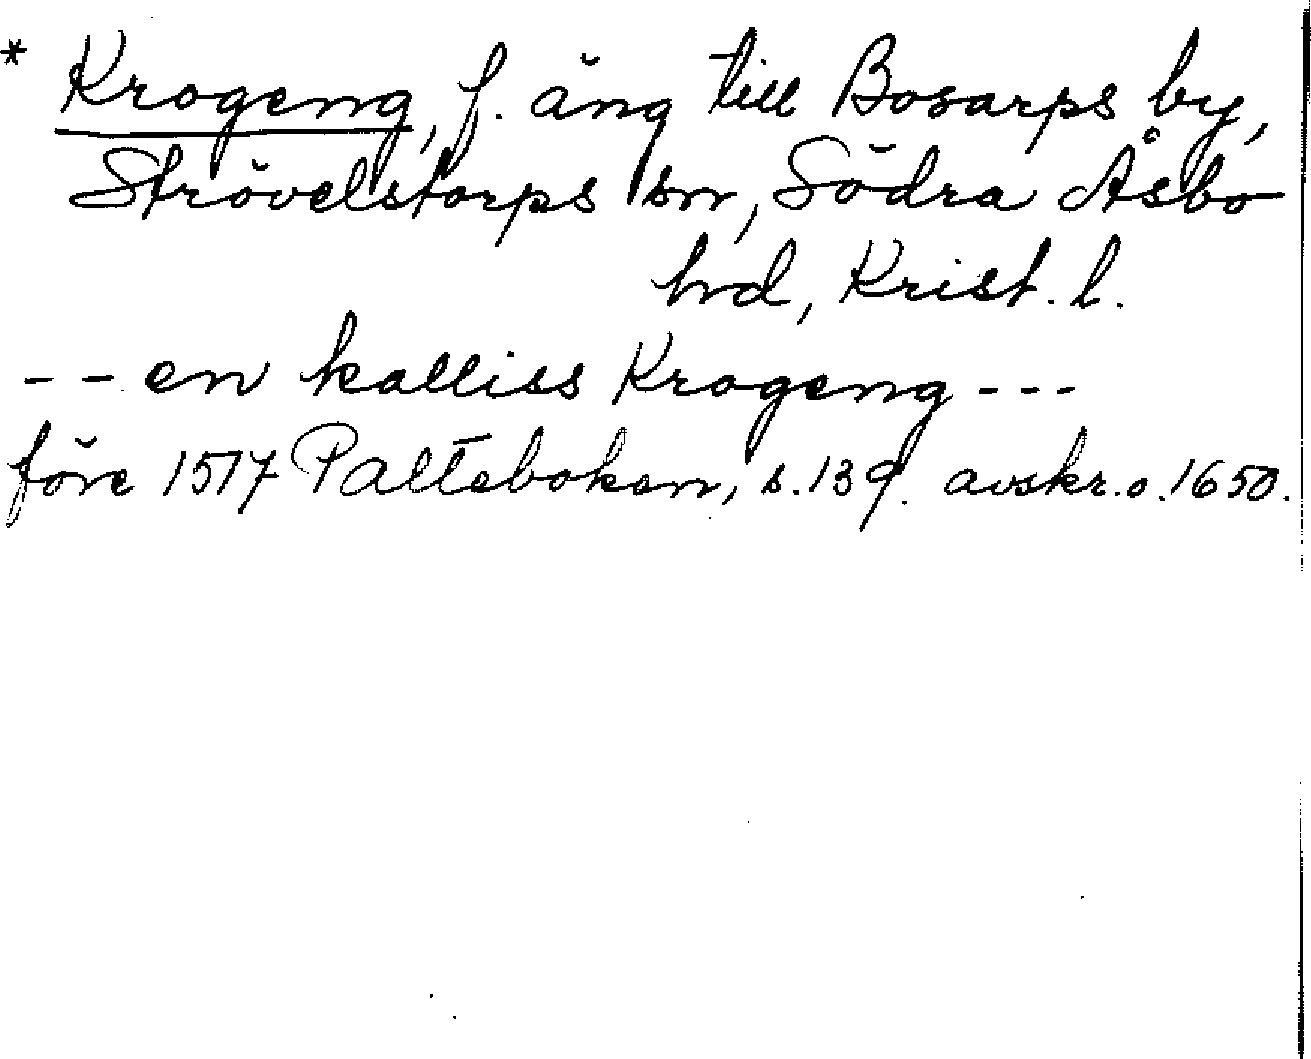 * Krogeng, f. äng till Bosarps by,
Strövelstorps sn, Södra Åsbo
hd, Krist. l.
-- en kalliss Krogeng ---
före 1517 Palteboken, s. 139. avskr. o. 1650.